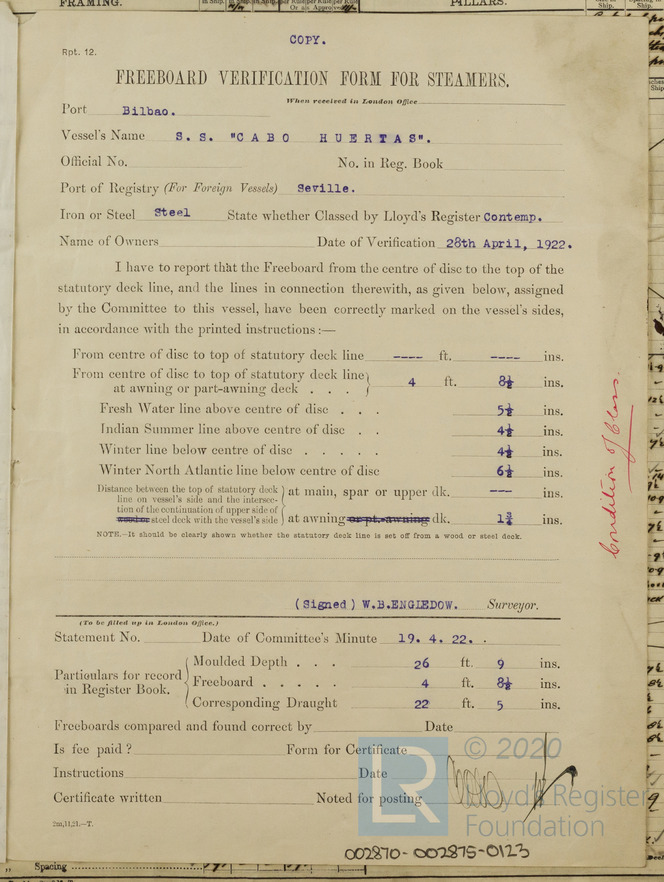 FRAMING.
PILLARS.
COPY.
Rpt. 12.
FREEBOARD VERIFICATION FORM FOR STEAMERS.
When received in London Office
Port Bilbao.
Vessel's Name S.S. "CABO HUERTAS".
Official No. No. in Reg. Book
Port of Registry (For Foreign Vessels) Seville.
Iron or Steel Steel State whether Classed by Lloyd's Register Contemp.
Name of Owners Date of Verification 28th April, 1922.
I have to report that the Freeboard from the centre of disc to the top of the
statutory deck line, and the lines in connection therewith, as given below, assigned
by the Committee to this vessel, have been correctly marked on the vessel's sides,
in accordance with the printed instructions :—
From centre of disc to top of statutory deck line ---- ft. ---- ins.
From centre of disc to top of statutory deck line
at awning or part-awning deck . . . 4 ft. 8½ ins.
Fresh Water line above centre of disc . . . 5½ ins.
Indian Summer line above centre of disc . . 4½ ins.
Winter line below centre of disc . . . . . 4½ ins.
Winter North Atlantic line below centre of disc 6½ ins.
Distance between the top of statutory deck
line on vessel's side and the intersec-
tion of the continuation of upper side of
wood or steel deck with the vessel's side
at main, spar or upper dk. --- ins.
at awning or pt.-awning dk. 1¾ ins.
NOTE.—It should be clearly shown whether the statutory deck line is set off from a wood or steel deck.
Condition of Class.
(Signed) W.B.ENGLEDOW. Surveyor.
(To be filled up in London Office.)
Statement No. Date of Committee's Minute 19. 4. 22. .
Particulars for record
in Register Book.
Moulded Depth . . . 26 ft. 9 ins.
Freeboard . . . . . 4 ft. 8½ ins.
Corresponding Draught 22 ft. 5 ins.
Freeboards compared and found correct by Date
Is fee paid ? Form for Certificate
Instructions Date
Certificate written Noted for posting
© 2020
LR
Lloyd's Register
Foundation
2m,11,21.—T.
002870-002875-0123
Spacing